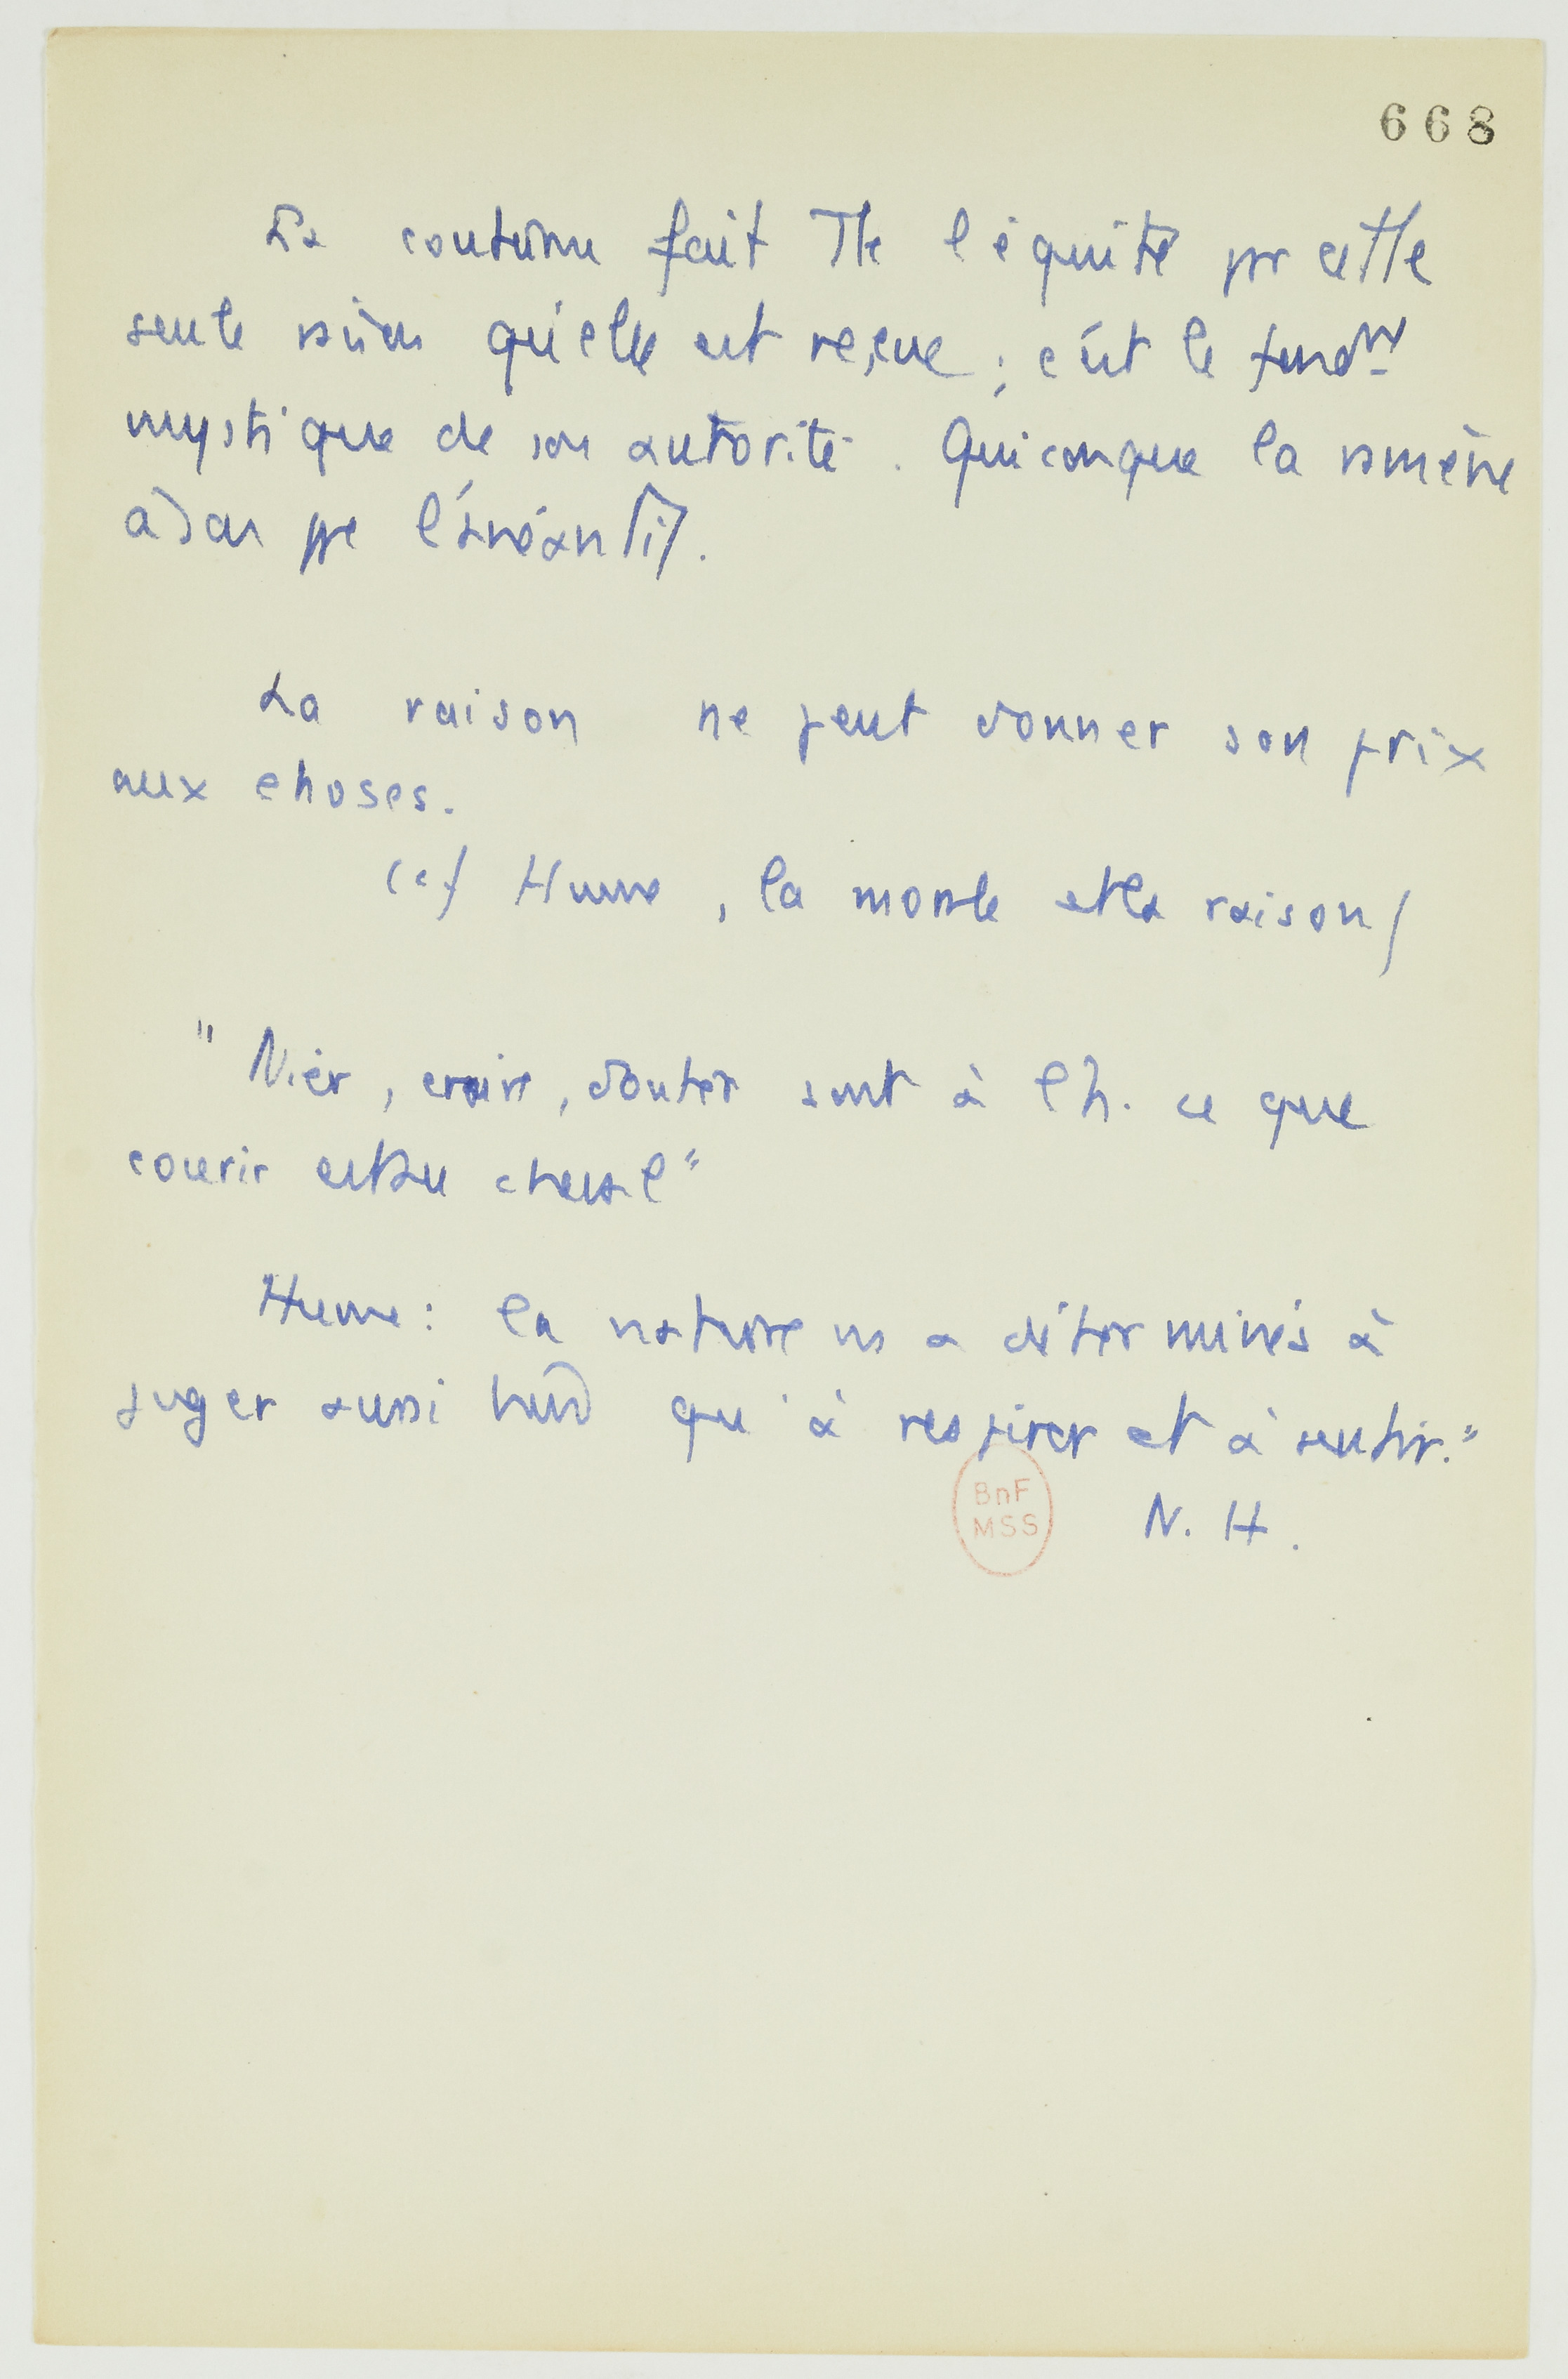 668
La coutume fait Tte l'équité pr cette
seule raison qu'elle est reçue ; c'est le fondmt
mystique de son autorité. Quiconque la ramène
à son ppe l'anéantit.
La raison ne peut donner son prix
aux choses.
(cf Hume, la morale et la raison)
"Nier, croire, douter sont à l'h. ce que
courir est au cheval"
Hume : la nature ns a déterminés à
juger aussi bien qu'à respirer et à sentir."
BnF
MSS
N. H.